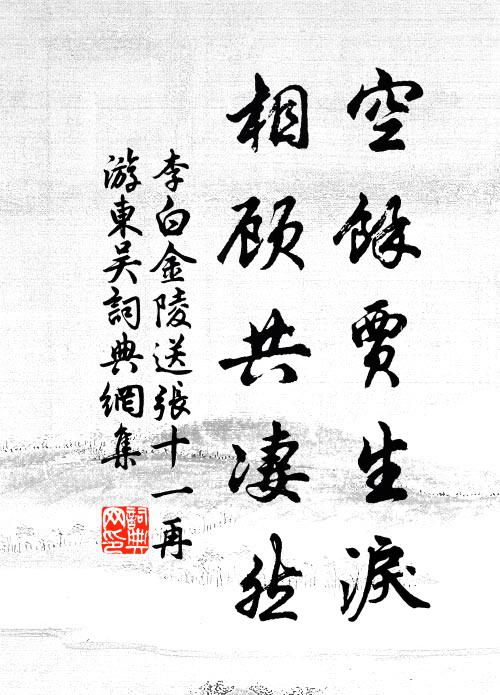 空餘賈生淚
相顾共凄然
李白金陵送張十一再
游東吴詞典網集
詞典
网印